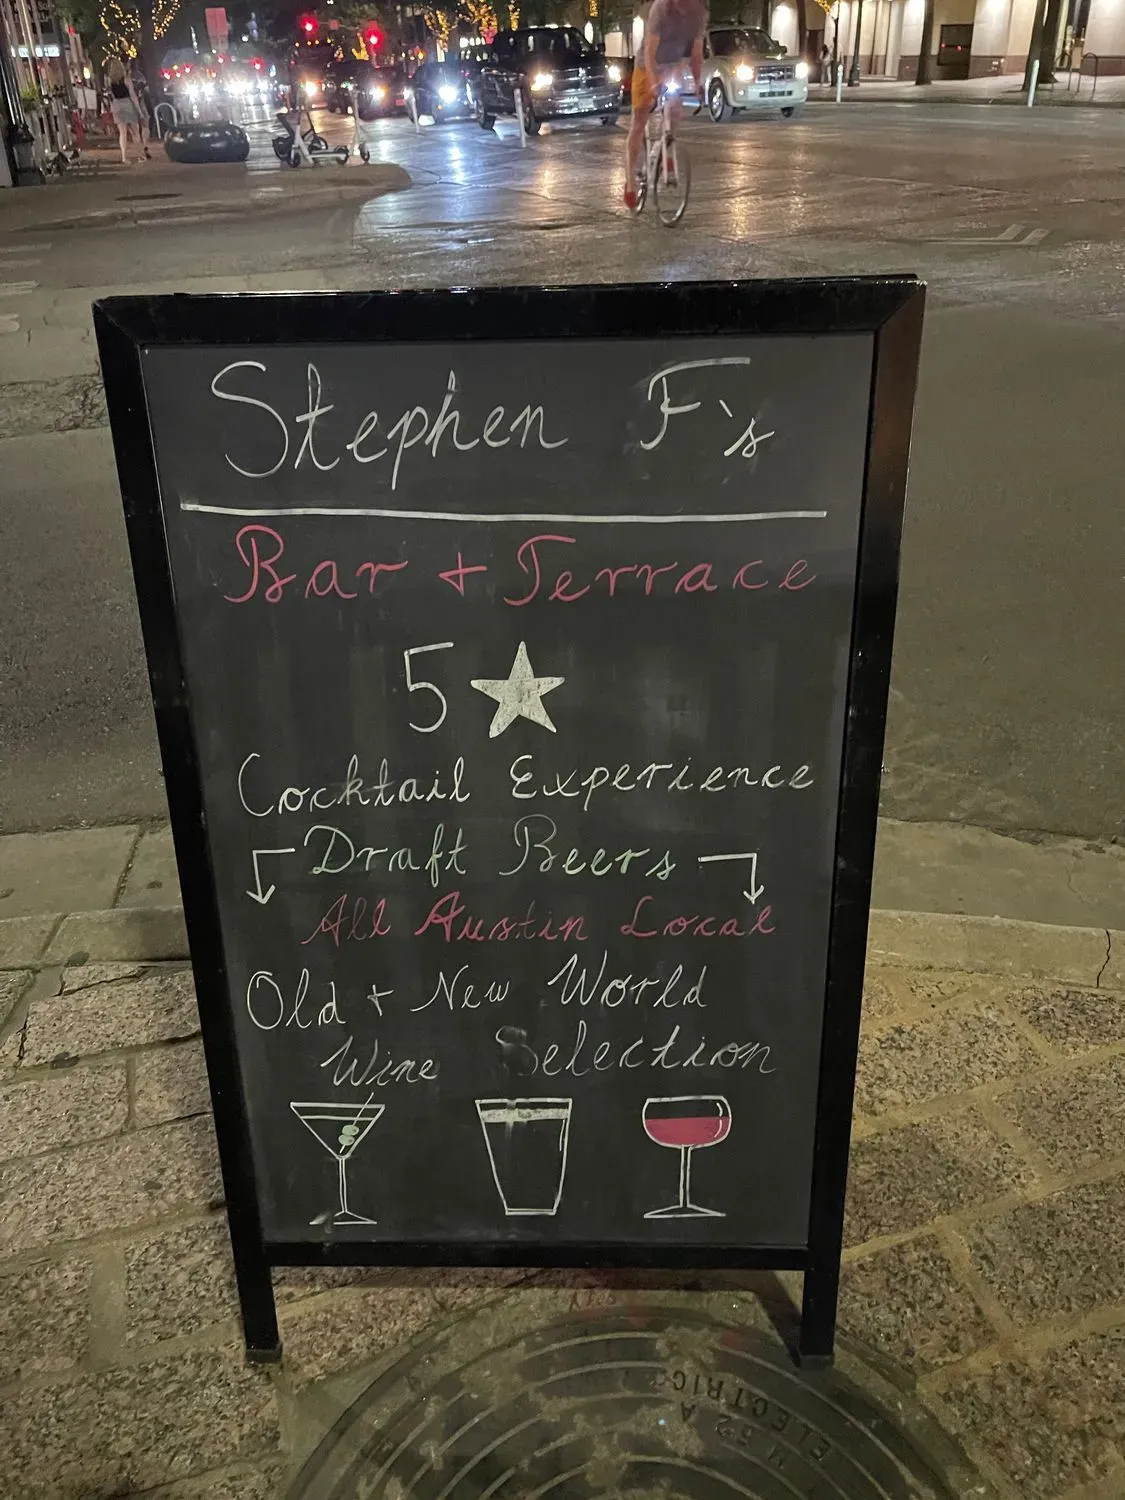 Stephen F's
Bar + Terrace
5★
Cocktail Experience
Draft Beers
All Austin Local
Old + New World
Wine Selection
M 52 A
ELECTRIC